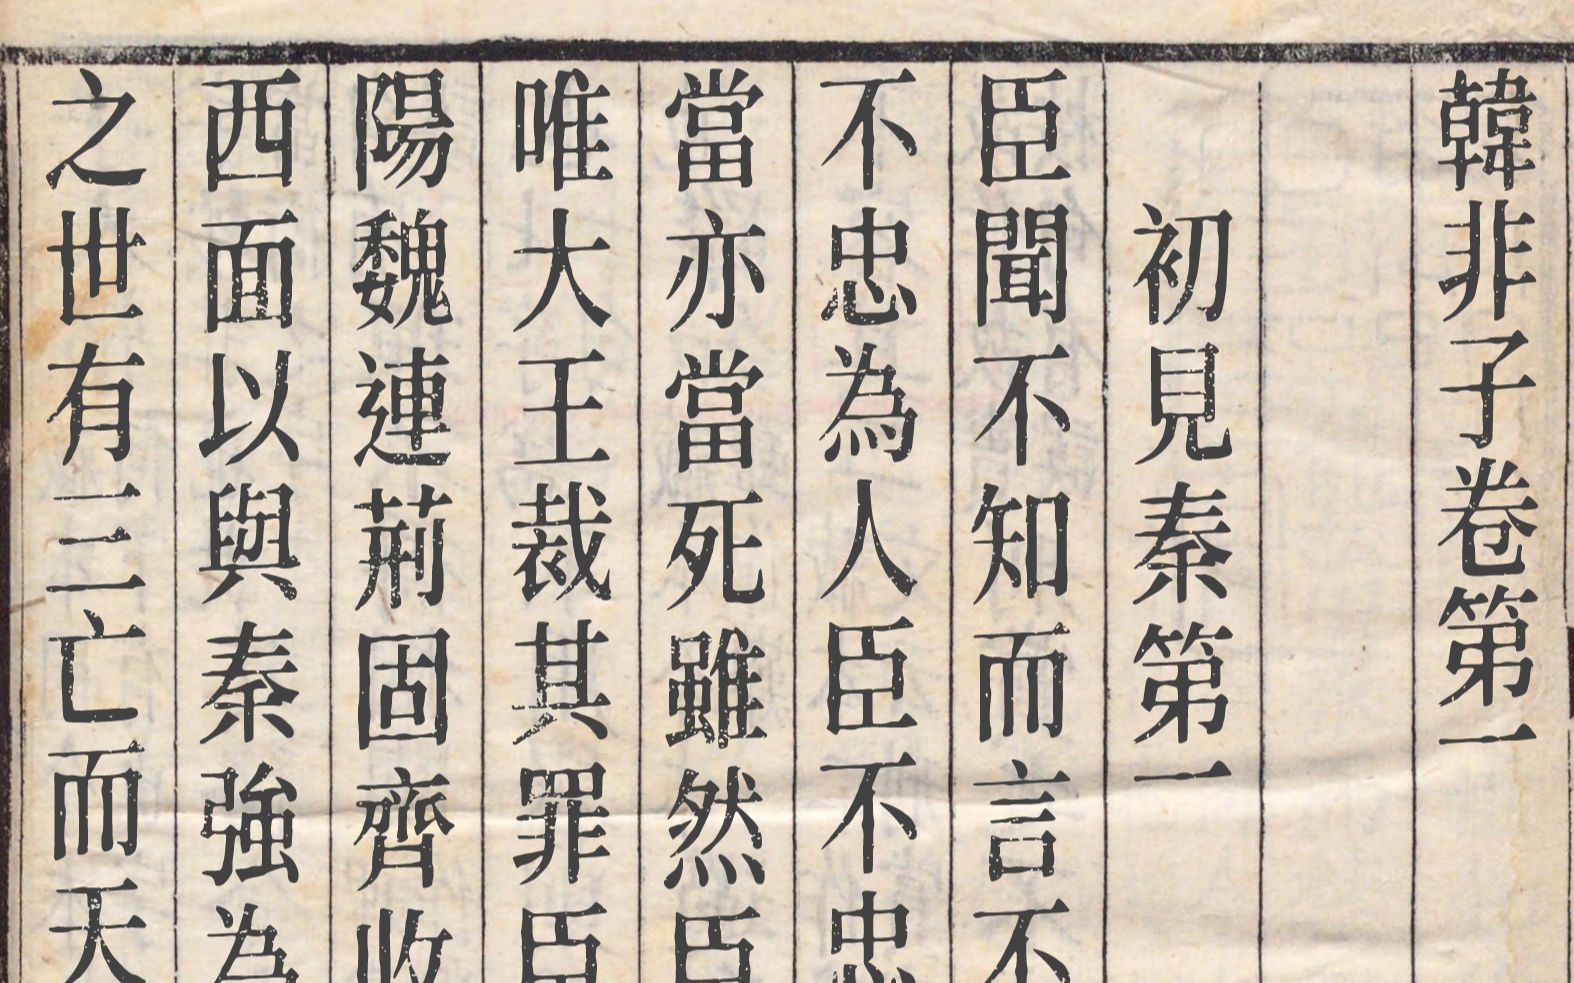 韓非子卷第一
初見秦第一
臣聞不知而言不
不忠為人臣不忠
當亦當死雖然臣
唯大王裁其罪臣
陽魏連荊固齊收
西面以與秦強為
之世有三亡而天